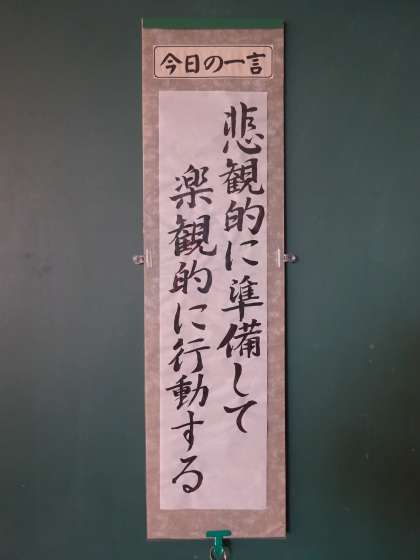 今日の一言
悲観的に準備して
楽観的に行動する